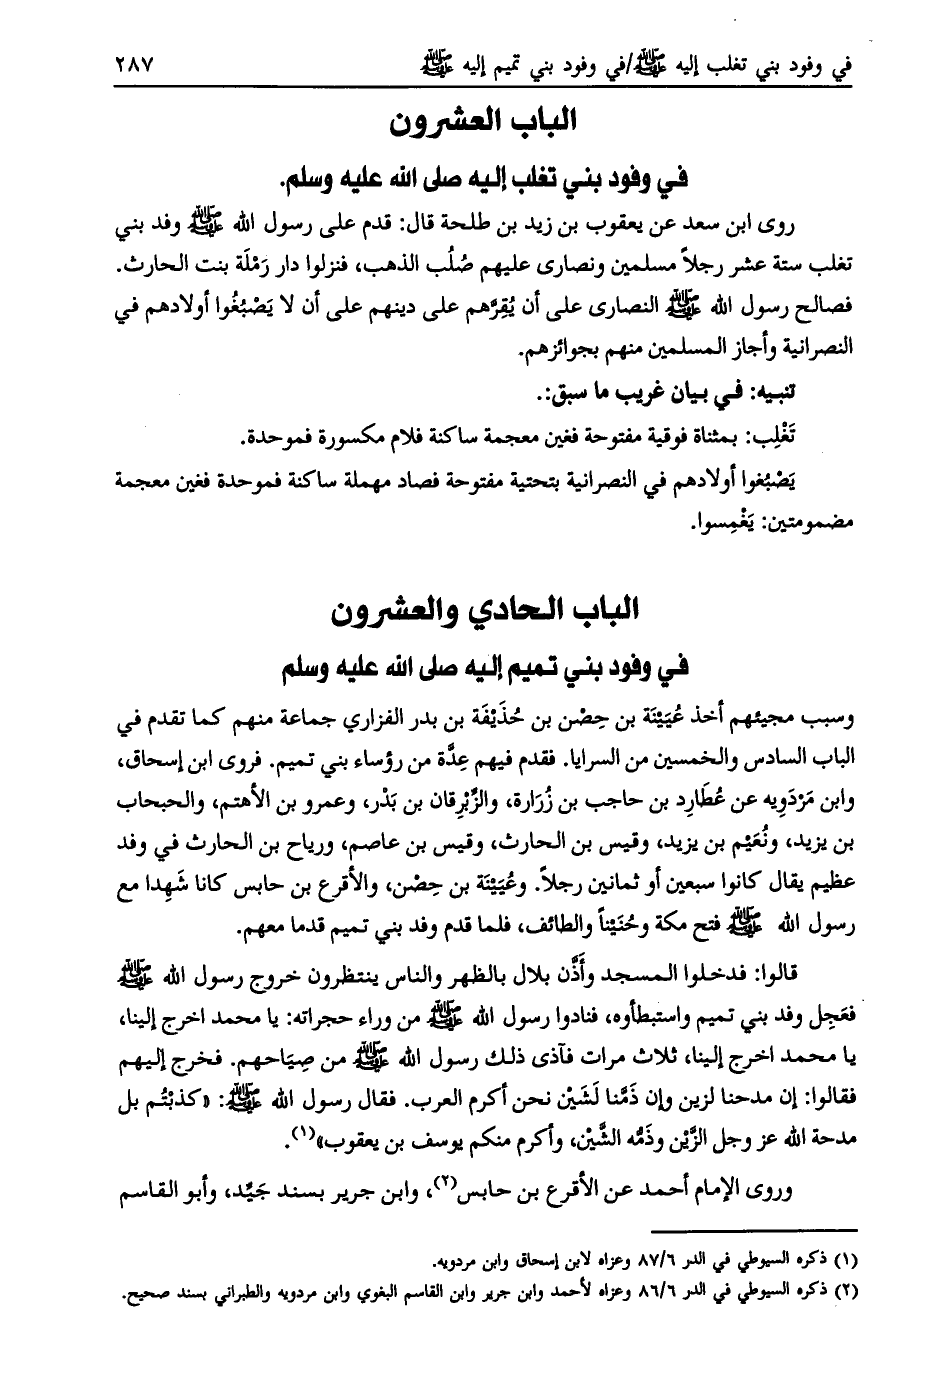 في وفود بني تغلب إليه ﷺ/في وفود بني تميم إليه ﷺ ٢٨٧
الباب العشرون
في وفود بني تغلب إليه صلى الله عليه وسلم.
روى ابن سعد عن يعقوب بن زيد بن طلحة قال: قدم على رسول الله ﷺ وفد بني
تغلب ستة عشر رجلاً مسلمين ونصارى عليهم صُلُب الذهب، فنزلوا دار رَمْلَة بنت الحارث.
فصالح رسول الله ﷺ النصارى على أن يُقِرَّهم على دينهم على أن لا يَصْبُغُوا أولادهم في
النصرانية وأجاز المسلمين منهم بجوائزهم.
تنبيه: في بيان غريب ما سبق:.
تَغْلِب: بمثناة فوقية مفتوحة فغين معجمة ساكنة فلام مكسورة فموحدة.
يَصْبُغوا أولادهم في النصرانية بتحتية مفتوحة فصاد مهملة ساكنة فموحدة فغين معجمة
مضمومتين: يَغْمِسوا.
الباب الحادي والعشرون
في وفود بني تميم إليه صلى الله عليه وسلم
وسبب مجيئهم أخذ عُيَيْنَة بن حِصْن بن حُذَيْفَة بن بدر الفزاري جماعة منهم كما تقدم في
الباب السادس والخمسين من السرايا. فقدم فيهم عِدَّة من رؤساء بني تميم. فروى ابن إسحاق،
وابن مَرْدَوِيه عن عُطَارِد بن حاجب بن زُرَارة، والزَّبْرِقان بن بَدْر، وعمرو بن الأهتم، والحبحاب
بن يزيد، ونُعَيْم بن يزيد، وقيس بن الحارث، وقيس بن عاصم، ورياح بن الحارث في وفد
عظيم يقال كانوا سبعين أو ثمانين رجلاً. وعُيَيْنَة بن حِصْن، والأقرع بن حابس كانا شَهِدا مع
رسول الله ﷺ فتح مكة وحُنَيْناً والطائف، فلما قدم وفد بني تميم قدما معهم.
قالوا: فدخلوا المسجد وأَذَّن بلال بالظهر والناس ينتظرون خروج رسول الله ﷺ
فعَجِل وفد بني تميم واستبطأوه، فنادوا رسول الله ﷺ من وراء حجراته: يا محمد اخرج إلينا،
يا محمد اخرج إلينا، ثلاث مرات فآذى ذلك رسول الله ﷺ من صِيَاحهم. فخرج إليهم
فقالوا: إن مدحنا لزين وإن ذَمَّنا لَشَيْن نحن أكرم العرب. فقال رسول الله ﷺ: «كذبْتُم بل
مدحة الله عز وجل الزَّيْن وذَمُّه الشَّيْن، وأكرم منكم يوسف بن يعقوب»(١).
وروى الإمام أحمد عن الأقرع بن حابس(٢)، وابن جرير بسند جَيِّد، وأبو القاسم
(١) ذكره السيوطي في الدر ٨٧/٦ وعزاه لابن إسحاق وابن مردويه.
(٢) ذكره السيوطي في الدر ٨٦/٦ وعزاه لأحمد وابن جرير وابن القاسم البغوي وابن مردويه والطبراني بسند صحيح.